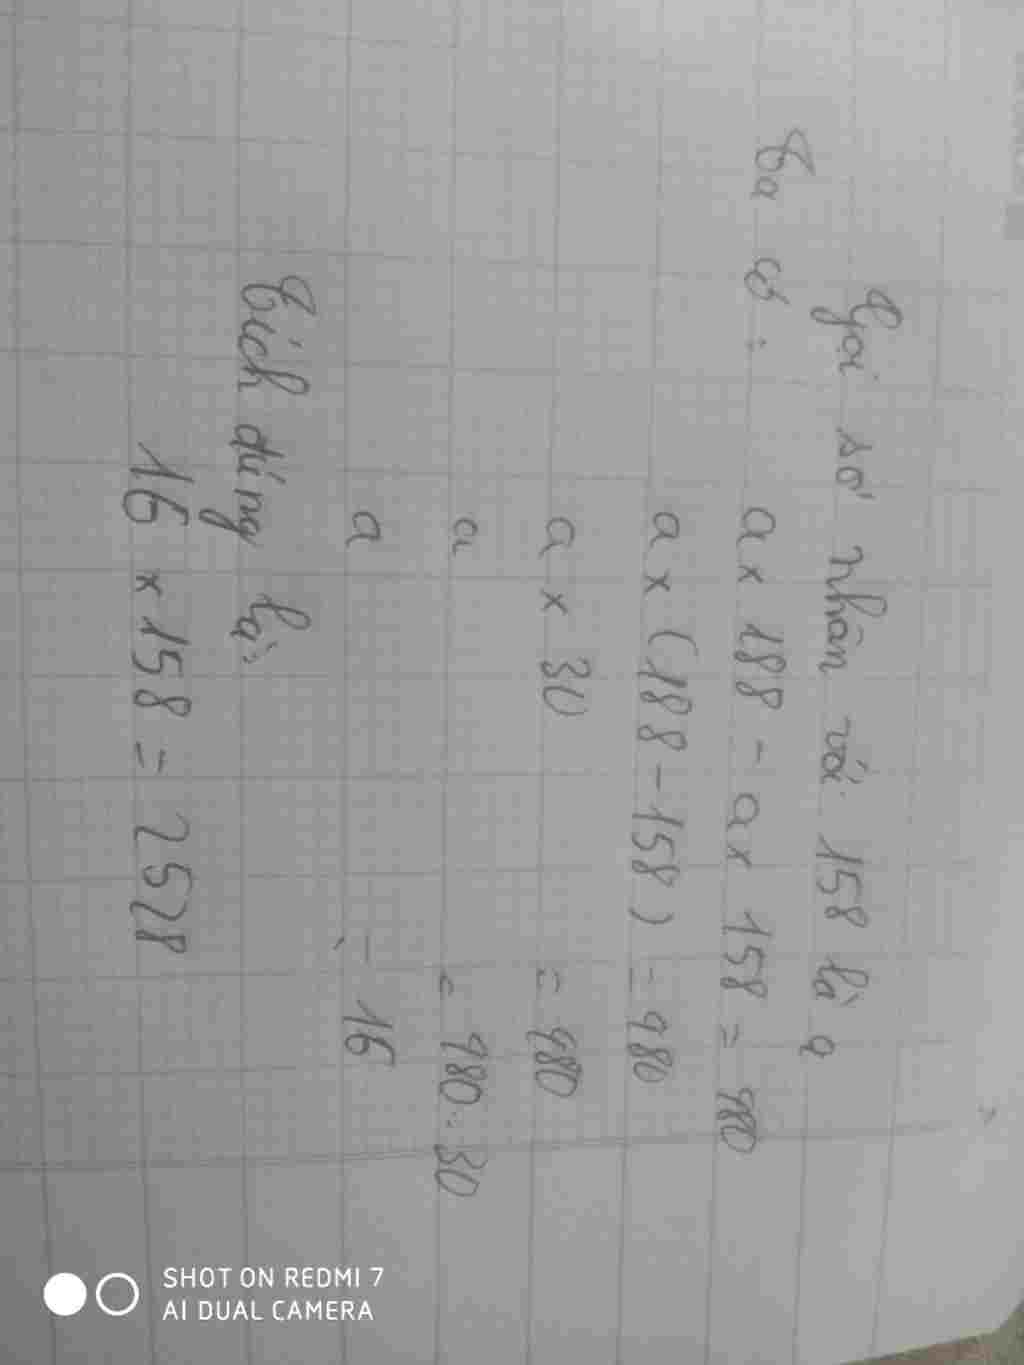 Gọi số nhân với 158 là a
Ta có:
a x 188 - a x 158 = 480
a x (188 - 158) = 480
a x 30 = 480
a = 480 : 30
a = 16
Tích đúng là:
16 x 158 = 2528
SHOT ON REDMI 7
AI DUAL CAMERA